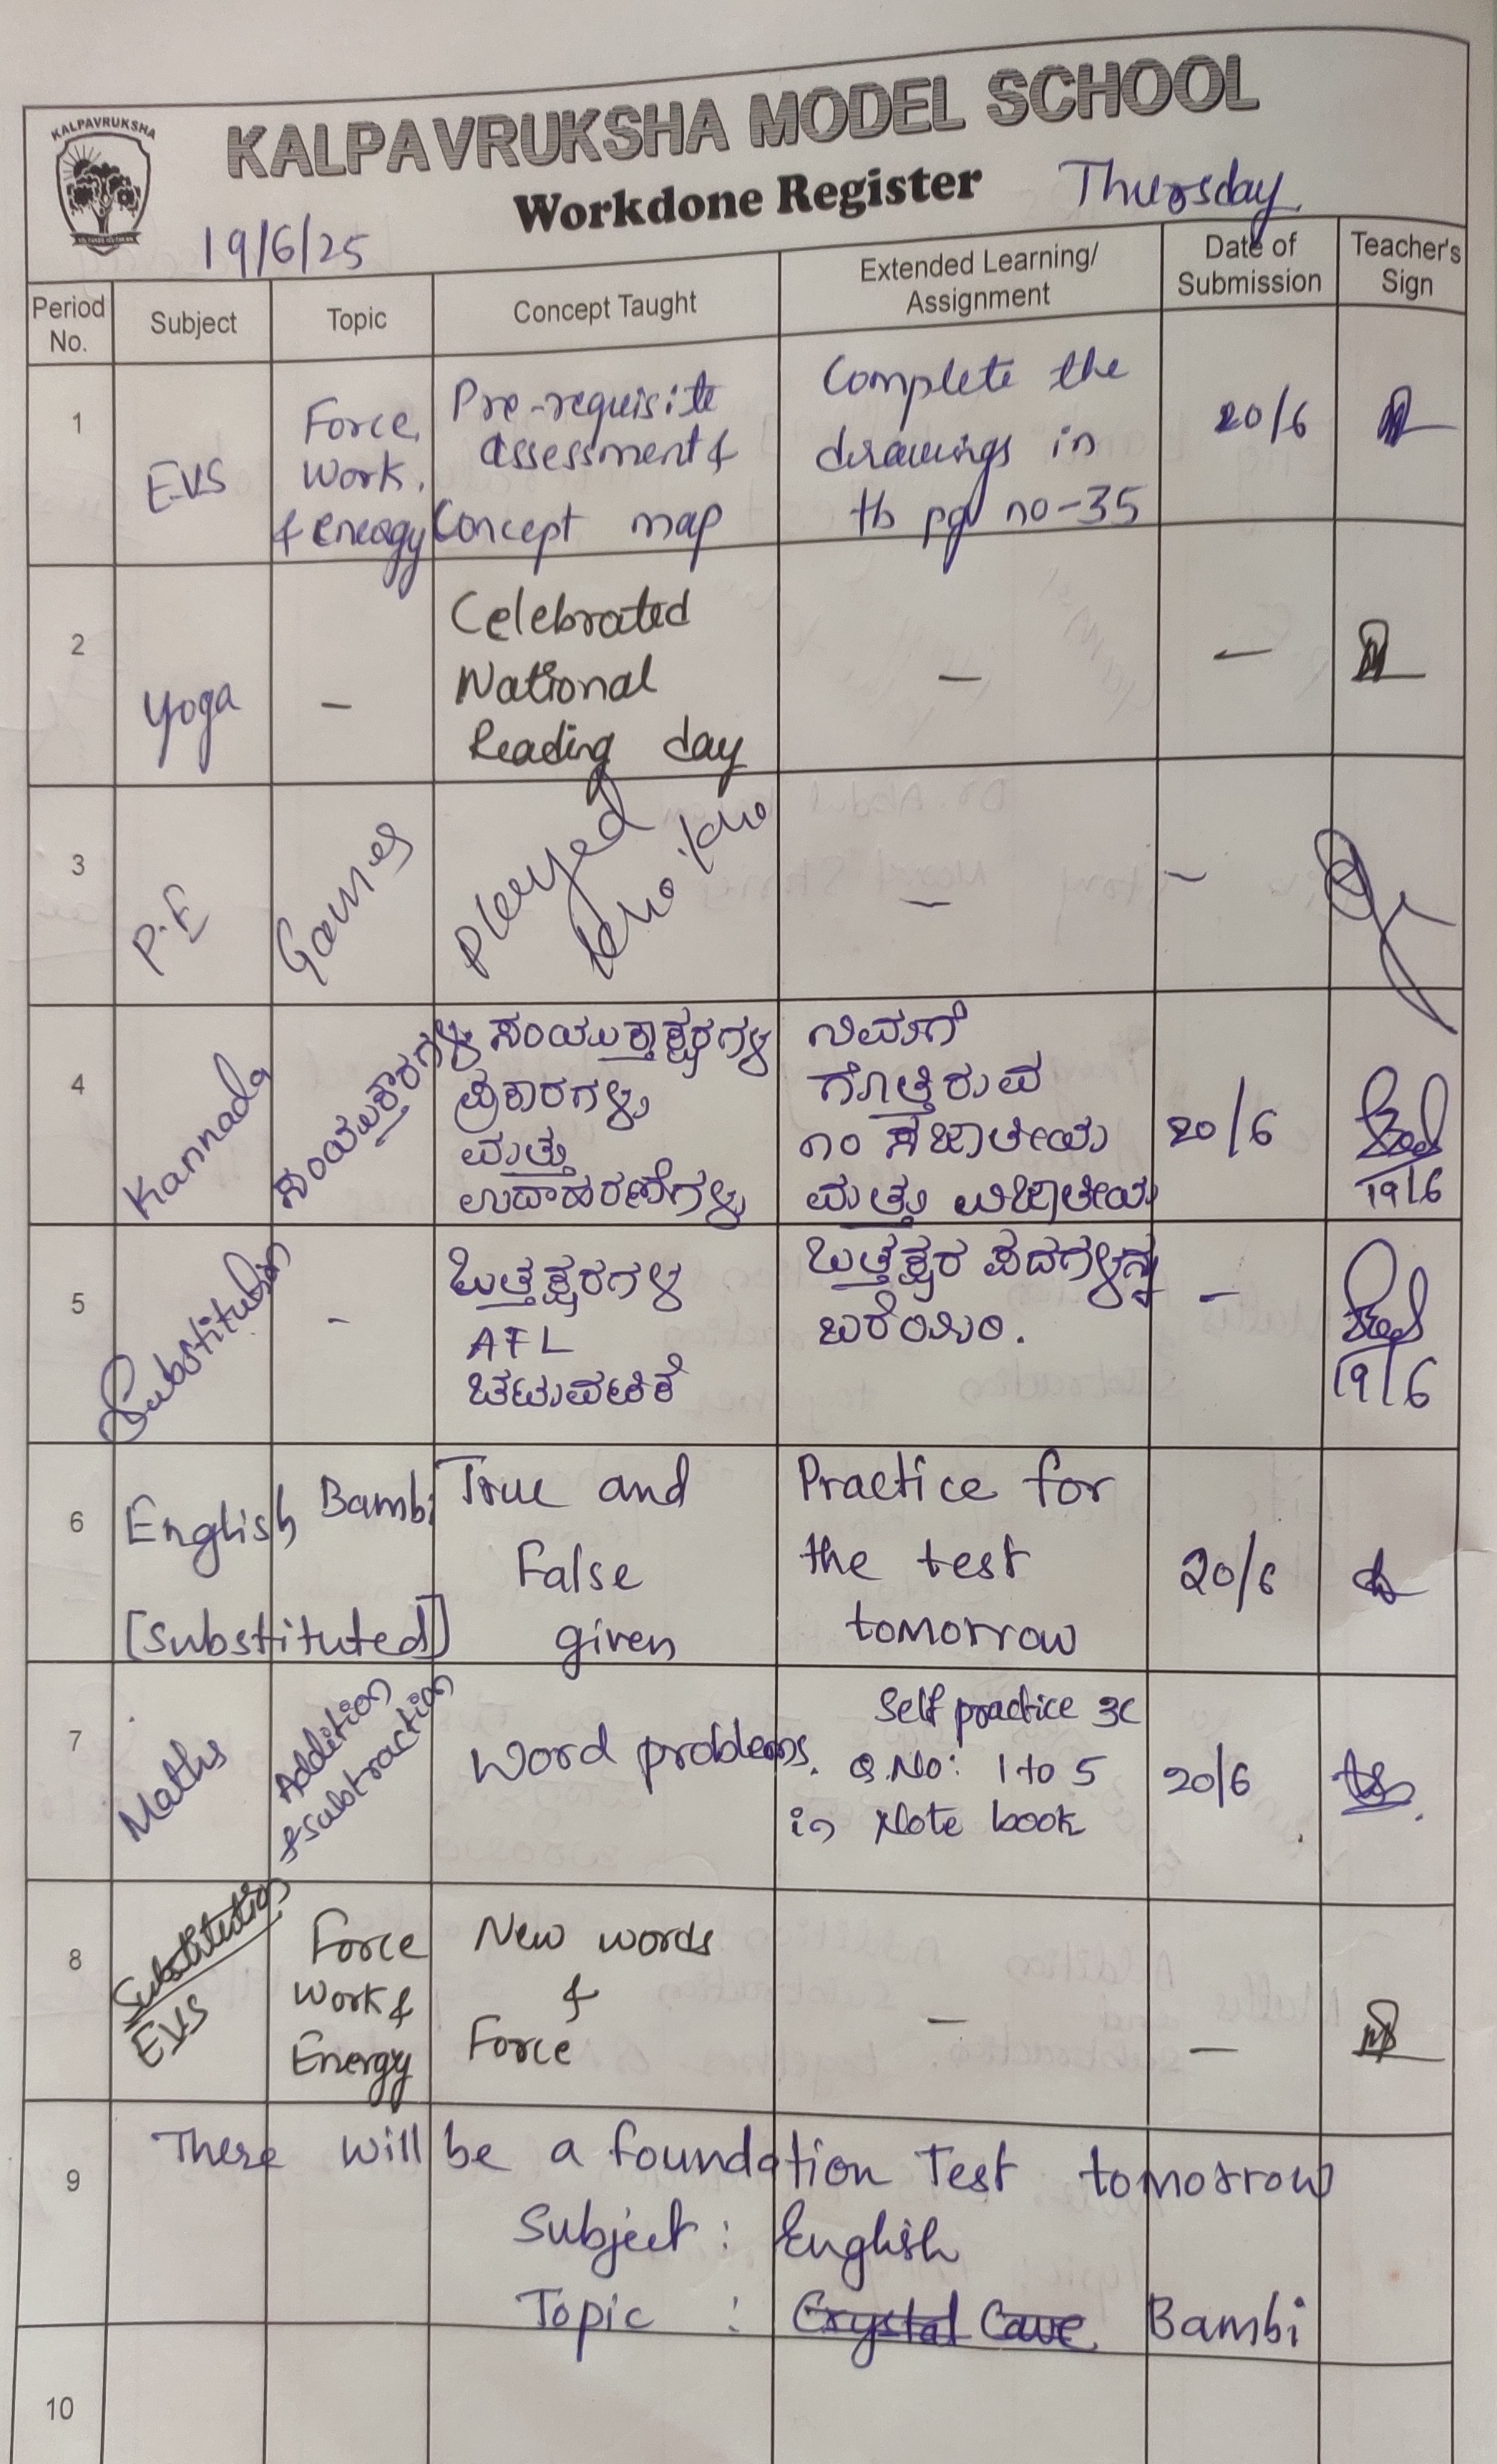 KALPAVRUKSHA
KALPAVRUKSHA MODEL SCHOOL
Workdone Register
Thursday
19/6/25
Period No.
Subject
Topic
Concept Taught
Extended Learning/
Assignment
Date of
Submission
Teacher's
Sign
1
EVS
Force,
Work,
& energy
Pre-requisite
assessment &
Concept map
Complete the
drawings in
tb pg no-35
20/6
2
Yoga
-
Celebrated
National
Reading day
-
-
3
P.E
Games
Played
kho kho
-
-
4
Kannada
ಸಂಯುಕ್ತಾಕ್ಷರಗಳ
ಪ್ರಕಾರಗಳು
ಮತ್ತು
ಉದಾಹರಣೆಗಳು
ನಿಮಗೆ
ಗೊತ್ತಿರುವ
೧೦ ಸಜಾತೀಯ
ಮತ್ತು ವಿಜಾತೀಯ
20/6
19/6
5
Substitution
-
ಒತ್ತಕ್ಷರಗಳ
AFL
ಚಟುವಟಿಕೆ
ಒತ್ತಕ್ಷರ ಪದಗಳನ್ನು
ಬರೆಯಿರಿ.
-
19/6
6
English
[substituted]
Bambi
True and
False
given
Practice for
the test
tomorrow
20/6
7
Maths
Addition
& subtraction
Word problems.
Self practice 3C
Q.No: 1 to 5
in Note book
20/6
8
Substitution
EVS
Force
Work &
Energy
New words
&
Force
-
-
9
There will be a foundation Test tomorrow
Subject : English
Topic : Crystal Cave Bambi
10